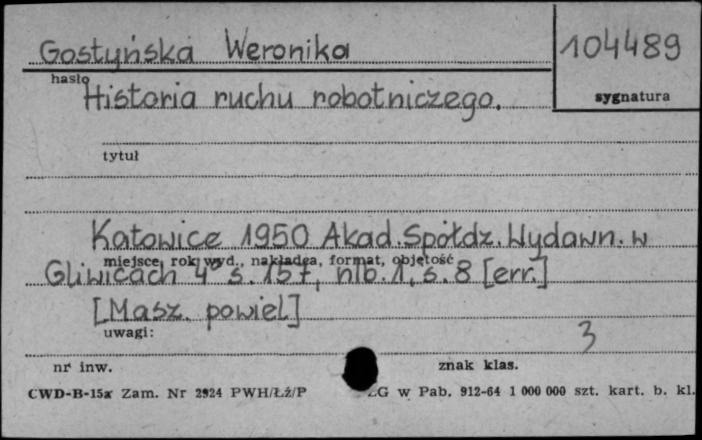 Gostyńska Weronika
104489
hasło
Historia ruchu robotniczego.
sygnatura
tytuł
Katowice 1950 Akad. Spółdz. Wydawn. w
miejsce, rok wyd., nakładca, format, objętość
Gliwicach 4° s. 157, nlb. 1, s. 8 [err.]
[Masz. powiel]
uwagi:
3
nr inw.
znak klas.
CWD-B-15a Zam. Nr 2924 PWH/Łź/P
ŁG w Pab. 912-64 1 000 000 szt. kart. b. kl.